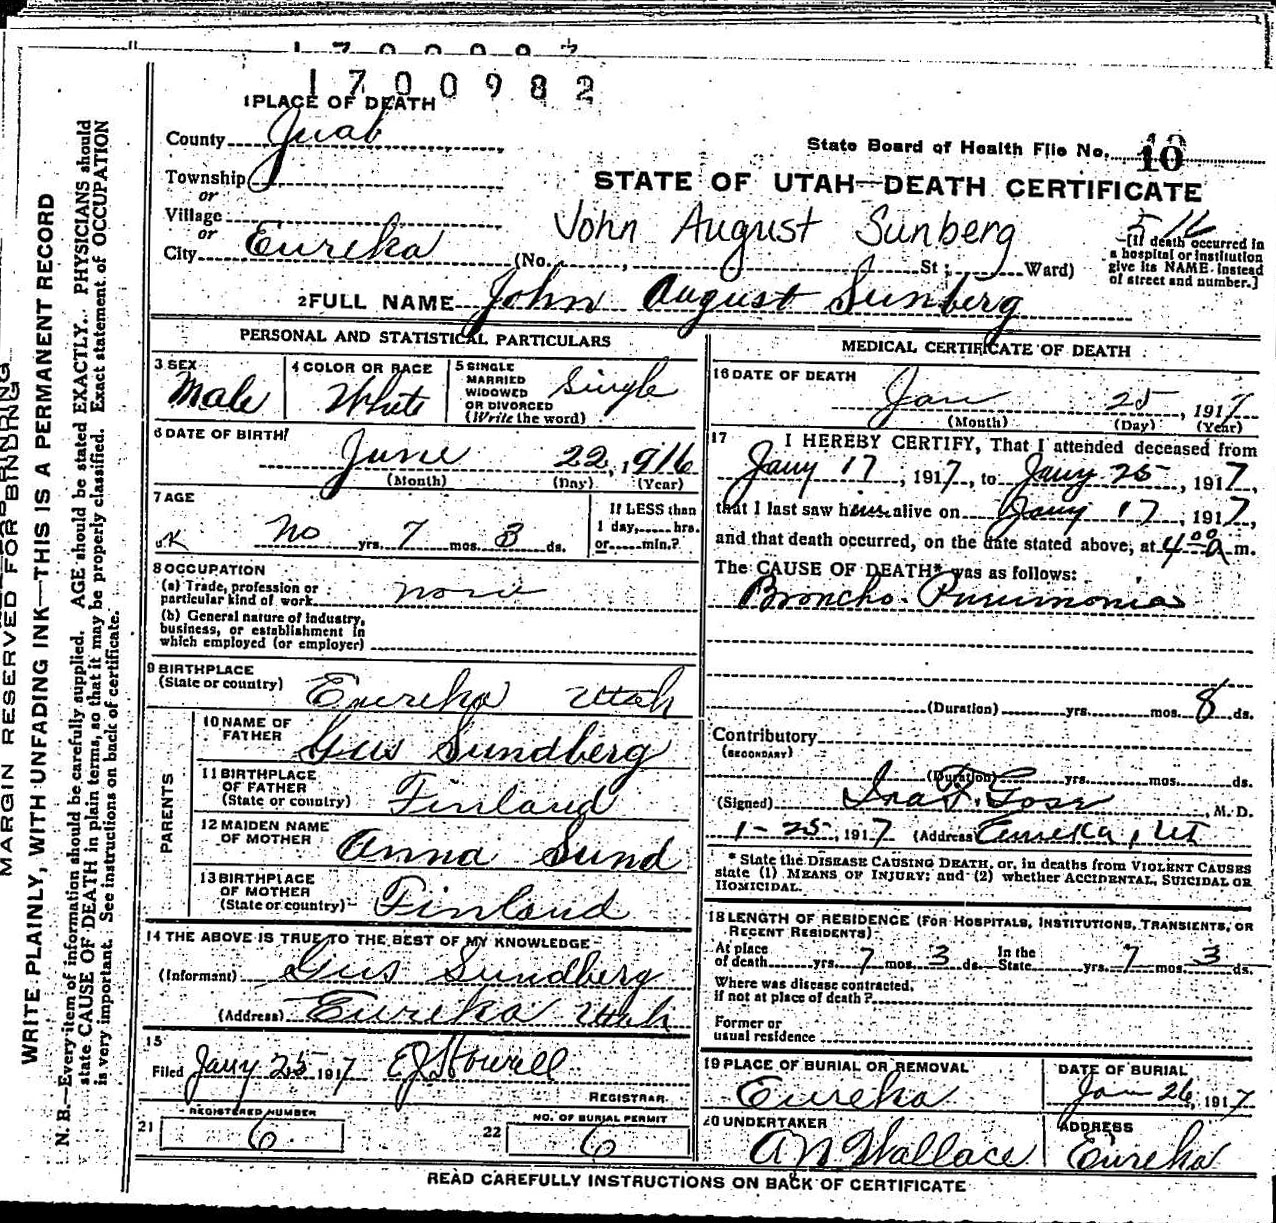 1700982
1 PLACE OF DEATH
County Juab
State Board of Health File No. 10
Township
or
STATE OF UTAH—DEATH CERTIFICATE
Village
or
John August Sunberg
City Eureka (No. , St; Ward)
[If death occurred in a hospital or institution give its NAME instead of street and number.]
2 FULL NAME John August Sunberg
PERSONAL AND STATISTICAL PARTICULARS
3 SEX Male
4 COLOR OR RACE White
5 SINGLE MARRIED WIDOWED OR DIVORCED (Write the word) Single
6 DATE OF BIRTH
June 22, 1916
(Month) (Day) (Year)
7 AGE
No yrs. 7 mos. 3 ds.
If LESS than 1 day, hrs. or min.?
8 OCCUPATION
(a) Trade, profession or particular kind of work none
(b) General nature of industry, business, or establishment in which employed (or employer)
9 BIRTHPLACE
(State or country) Eureka Utah
PARENTS
10 NAME OF FATHER Gus Sundberg
11 BIRTHPLACE OF FATHER (State or country) Finland
12 MAIDEN NAME OF MOTHER Anna Sund
13 BIRTHPLACE OF MOTHER (State or country) Finland
14 THE ABOVE IS TRUE TO THE BEST OF MY KNOWLEDGE
(Informant) Gus Sundberg
(Address) Eureka Utah
15
Filed Jany 25 1917 E J Howell
REGISTRAR
21 REGISTERED NUMBER 6
22 NO. OF BURIAL PERMIT 6
MEDICAL CERTIFICATE OF DEATH
16 DATE OF DEATH
Jan 25, 1917
(Month) (Day) (Year)
17 I HEREBY CERTIFY, That I attended deceased from
Jany 17, 1917, to Jany 25, 1917,
that I last saw him alive on Jany 17, 1917,
and that death occurred, on the date stated above, at 4:00 a m.
The CAUSE OF DEATH* was as follows:
Broncho-Pneumonia
(Duration) yrs. mos. 8 ds.
Contributory
(SECONDARY)
(Duration) yrs. mos. ds.
(Signed) M.D.
1-25, 1917 (Address) Eureka, Ut
* State the DISEASE CAUSING DEATH, or, in deaths from VIOLENT CAUSES
state (1) MEANS OF INJURY; and (2) whether ACCIDENTAL, SUICIDAL OR
HOMICIDAL.
18 LENGTH OF RESIDENCE (FOR HOSPITALS, INSTITUTIONS, TRANSIENTS, OR
RECENT RESIDENTS)
At place of death yrs. 7 mos. 3 ds. In the State yrs. 7 mos. 3 ds.
Where was disease contracted,
if not at place of death?
Former or
usual residence
19 PLACE OF BURIAL OR REMOVAL Eureka
DATE OF BURIAL Jan 26, 1917
20 UNDERTAKER A N Wallace
ADDRESS Eureka
READ CAREFULLY INSTRUCTIONS ON BACK OF CERTIFICATE
MARGIN RESERVED FOR BINDING
WRITE PLAINLY, WITH UNFADING INK—THIS IS A PERMANENT RECORD
N. B.—Every item of information should be carefully supplied. AGE should be stated EXACTLY. PHYSICIANS should
state CAUSE OF DEATH in plain terms, so that it may be properly classified. Exact statement of OCCUPATION
is very important. See instructions on back of certificate.